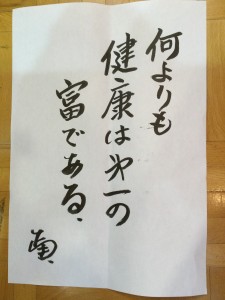 何よりも
健康は㐧一の
富である、